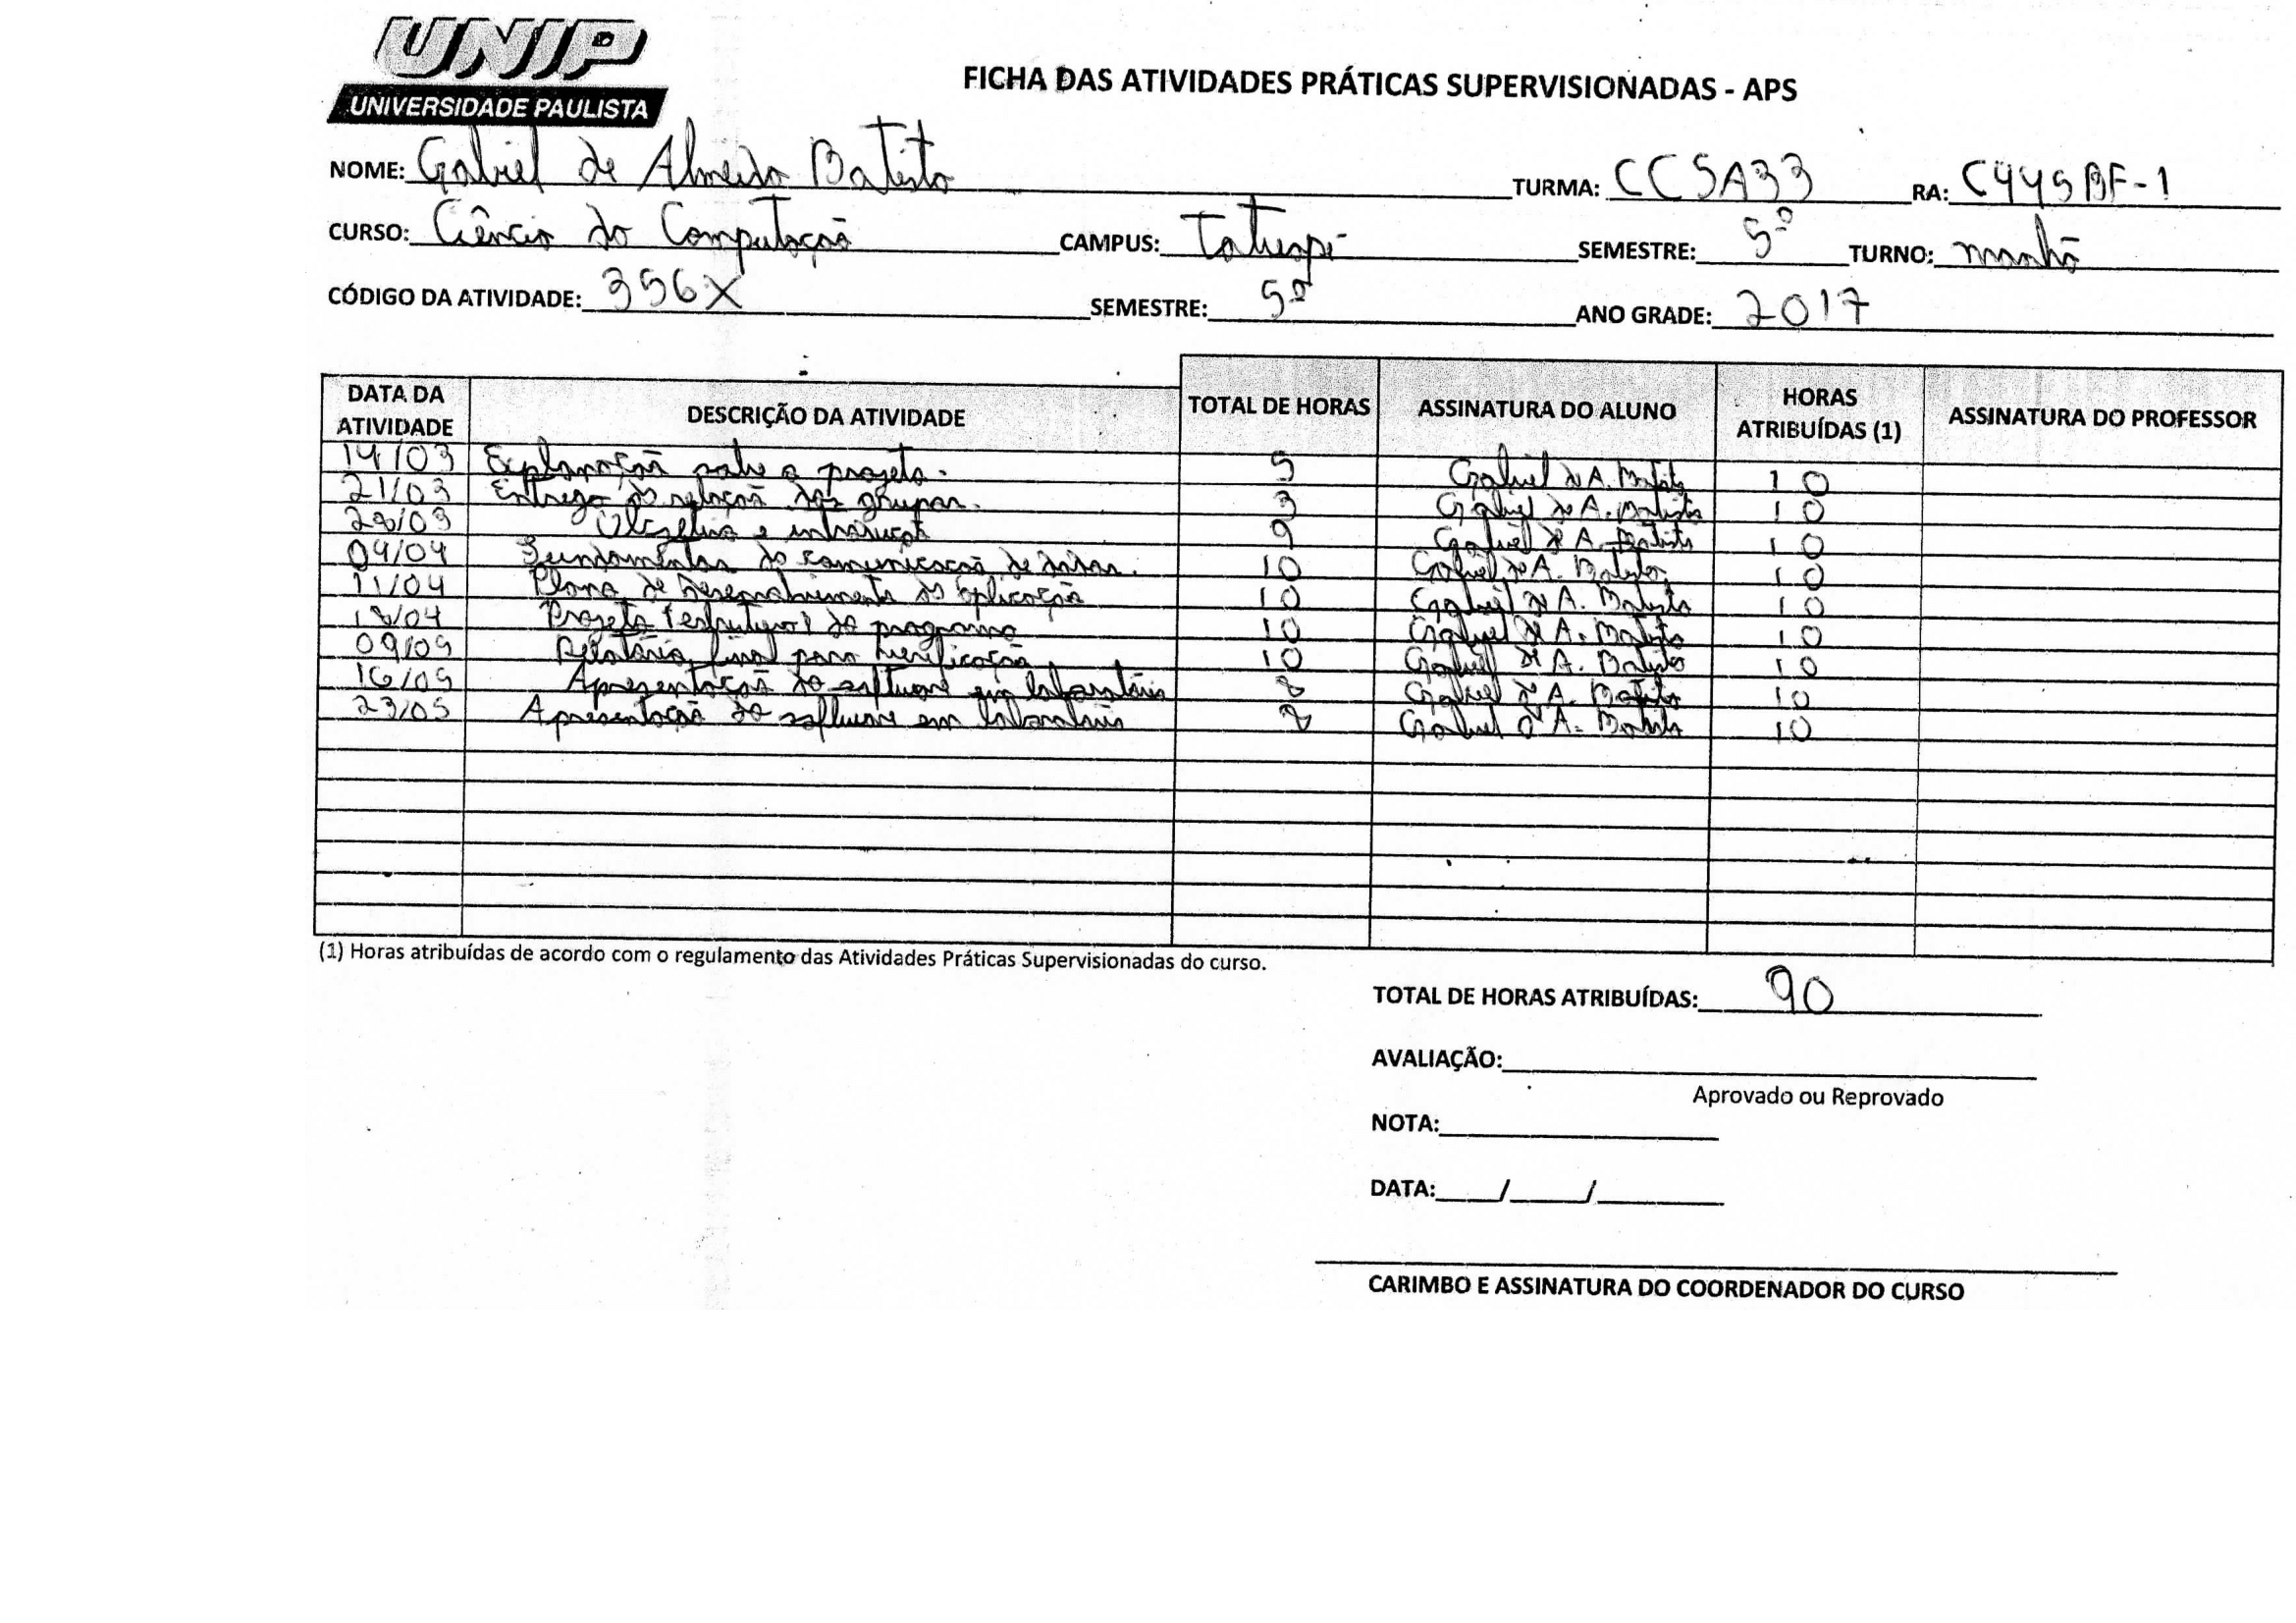 UNIP
UNIVERSIDADE PAULISTA
FICHA DAS ATIVIDADES PRÁTICAS SUPERVISIONADAS - APS
NOME: Gabriel de Almeida Batista TURMA: CC5A33 RA: C445BF-1
CURSO: Ciência da Computação CAMPUS: Tatuapé SEMESTRE: 5º TURNO: manhã
CÓDIGO DA ATIVIDADE: 356X SEMESTRE: 5º ANO GRADE: 2017
DATA DA ATIVIDADE DESCRIÇÃO DA ATIVIDADE TOTAL DE HORAS ASSINATURA DO ALUNO HORAS ATRIBUÍDAS (1) ASSINATURA DO PROFESSOR
14/03 Explanação sobre o projeto. 5 Gabriel de A. Batista 10
21/03 Entrega da relação dos grupos. 3 Gabriel de A. Batista 10
28/03 Objetivo e introdução 9 Gabriel de A. Batista 10
04/04 Fundamentos da comunicação de dados. 10 Gabriel de A. Batista 10
11/04 Plano de desenvolvimento da aplicação 10 Gabriel de A. Batista 10
18/04 Projeto (estrutura) do programa 10 Gabriel de A. Batista 10
09/05 Relatório final para verificação 10 Gabriel de A. Batista 10
16/05 Apresentação do software em laboratório 8 Gabriel de A. Batista 10
23/05 Apresentação do software em laboratório 8 Gabriel de A. Batista 10
(1) Horas atribuídas de acordo com o regulamento das Atividades Práticas Supervisionadas do curso.
TOTAL DE HORAS ATRIBUÍDAS: 90
AVALIAÇÃO:
Aprovado ou Reprovado
NOTA:
DATA: / /
CARIMBO E ASSINATURA DO COORDENADOR DO CURSO